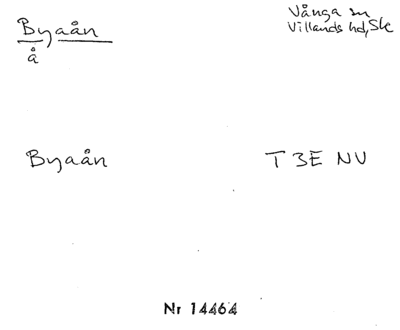 Byaån
å
Vånga sn
Villands hd, Ske
Byaån
T 3E NV
Nr 14464